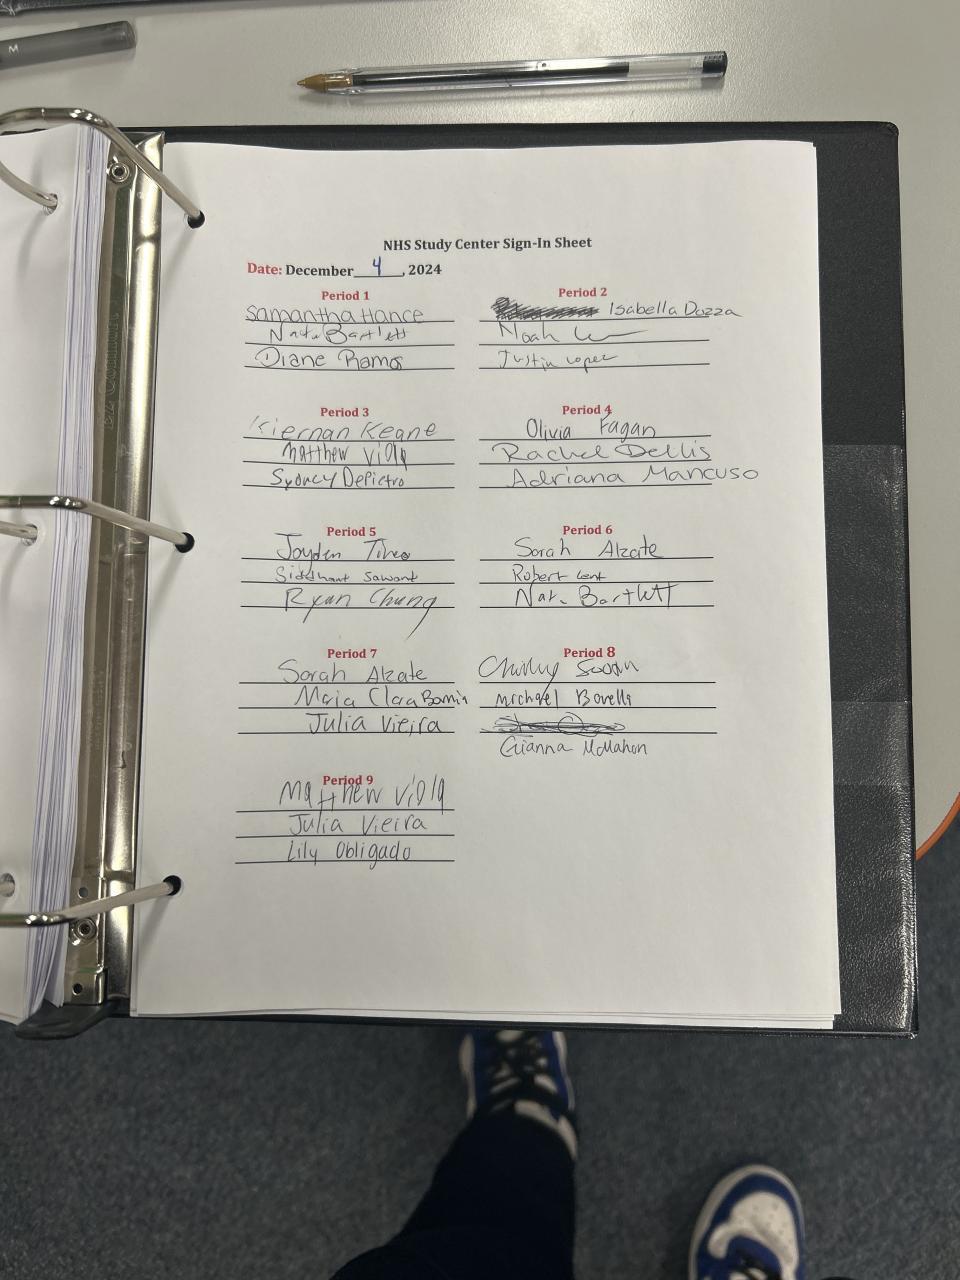 M
NHS Study Center Sign-In Sheet
Date: December 4, 2024
Period 1
Samantha Hance
Nate Bartlett
Diane Ramos
Period 2
Isabella Dozza
Noah
Justin Lopez
Period 3
Kiernan Keane
Matthew Viola
Sydney DePietro
Period 4
Olivia Fagan
Rachel Dellis
Adriana Mancuso
Period 5
Jayden
Siddhant Sawant
Ryan Chung
Period 6
Sarah Alzate
Robert Lent
Nate Bartlett
Period 7
Sarah Alzate
Maria Clara
Julia Vieira
Period 8
Michael Bovells
Gianna McMahon
Period 9
Matthew Viola
Julia Vieira
Lily Obligado